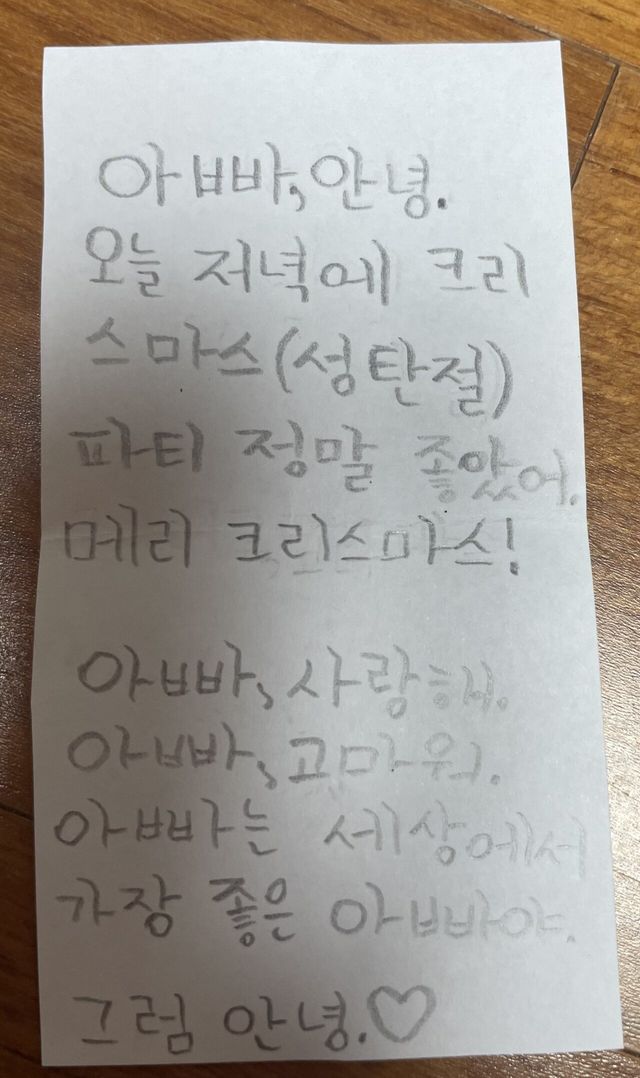 아빠, 안녕.
오늘 저녁에 크리
스마스(성탄절)
파티 정말 좋았어.
메리 크리스마스!
아빠, 사랑해.
아빠, 고마워.
아빠는 세상에서
가장 좋은 아빠야.
그럼 안녕.♡